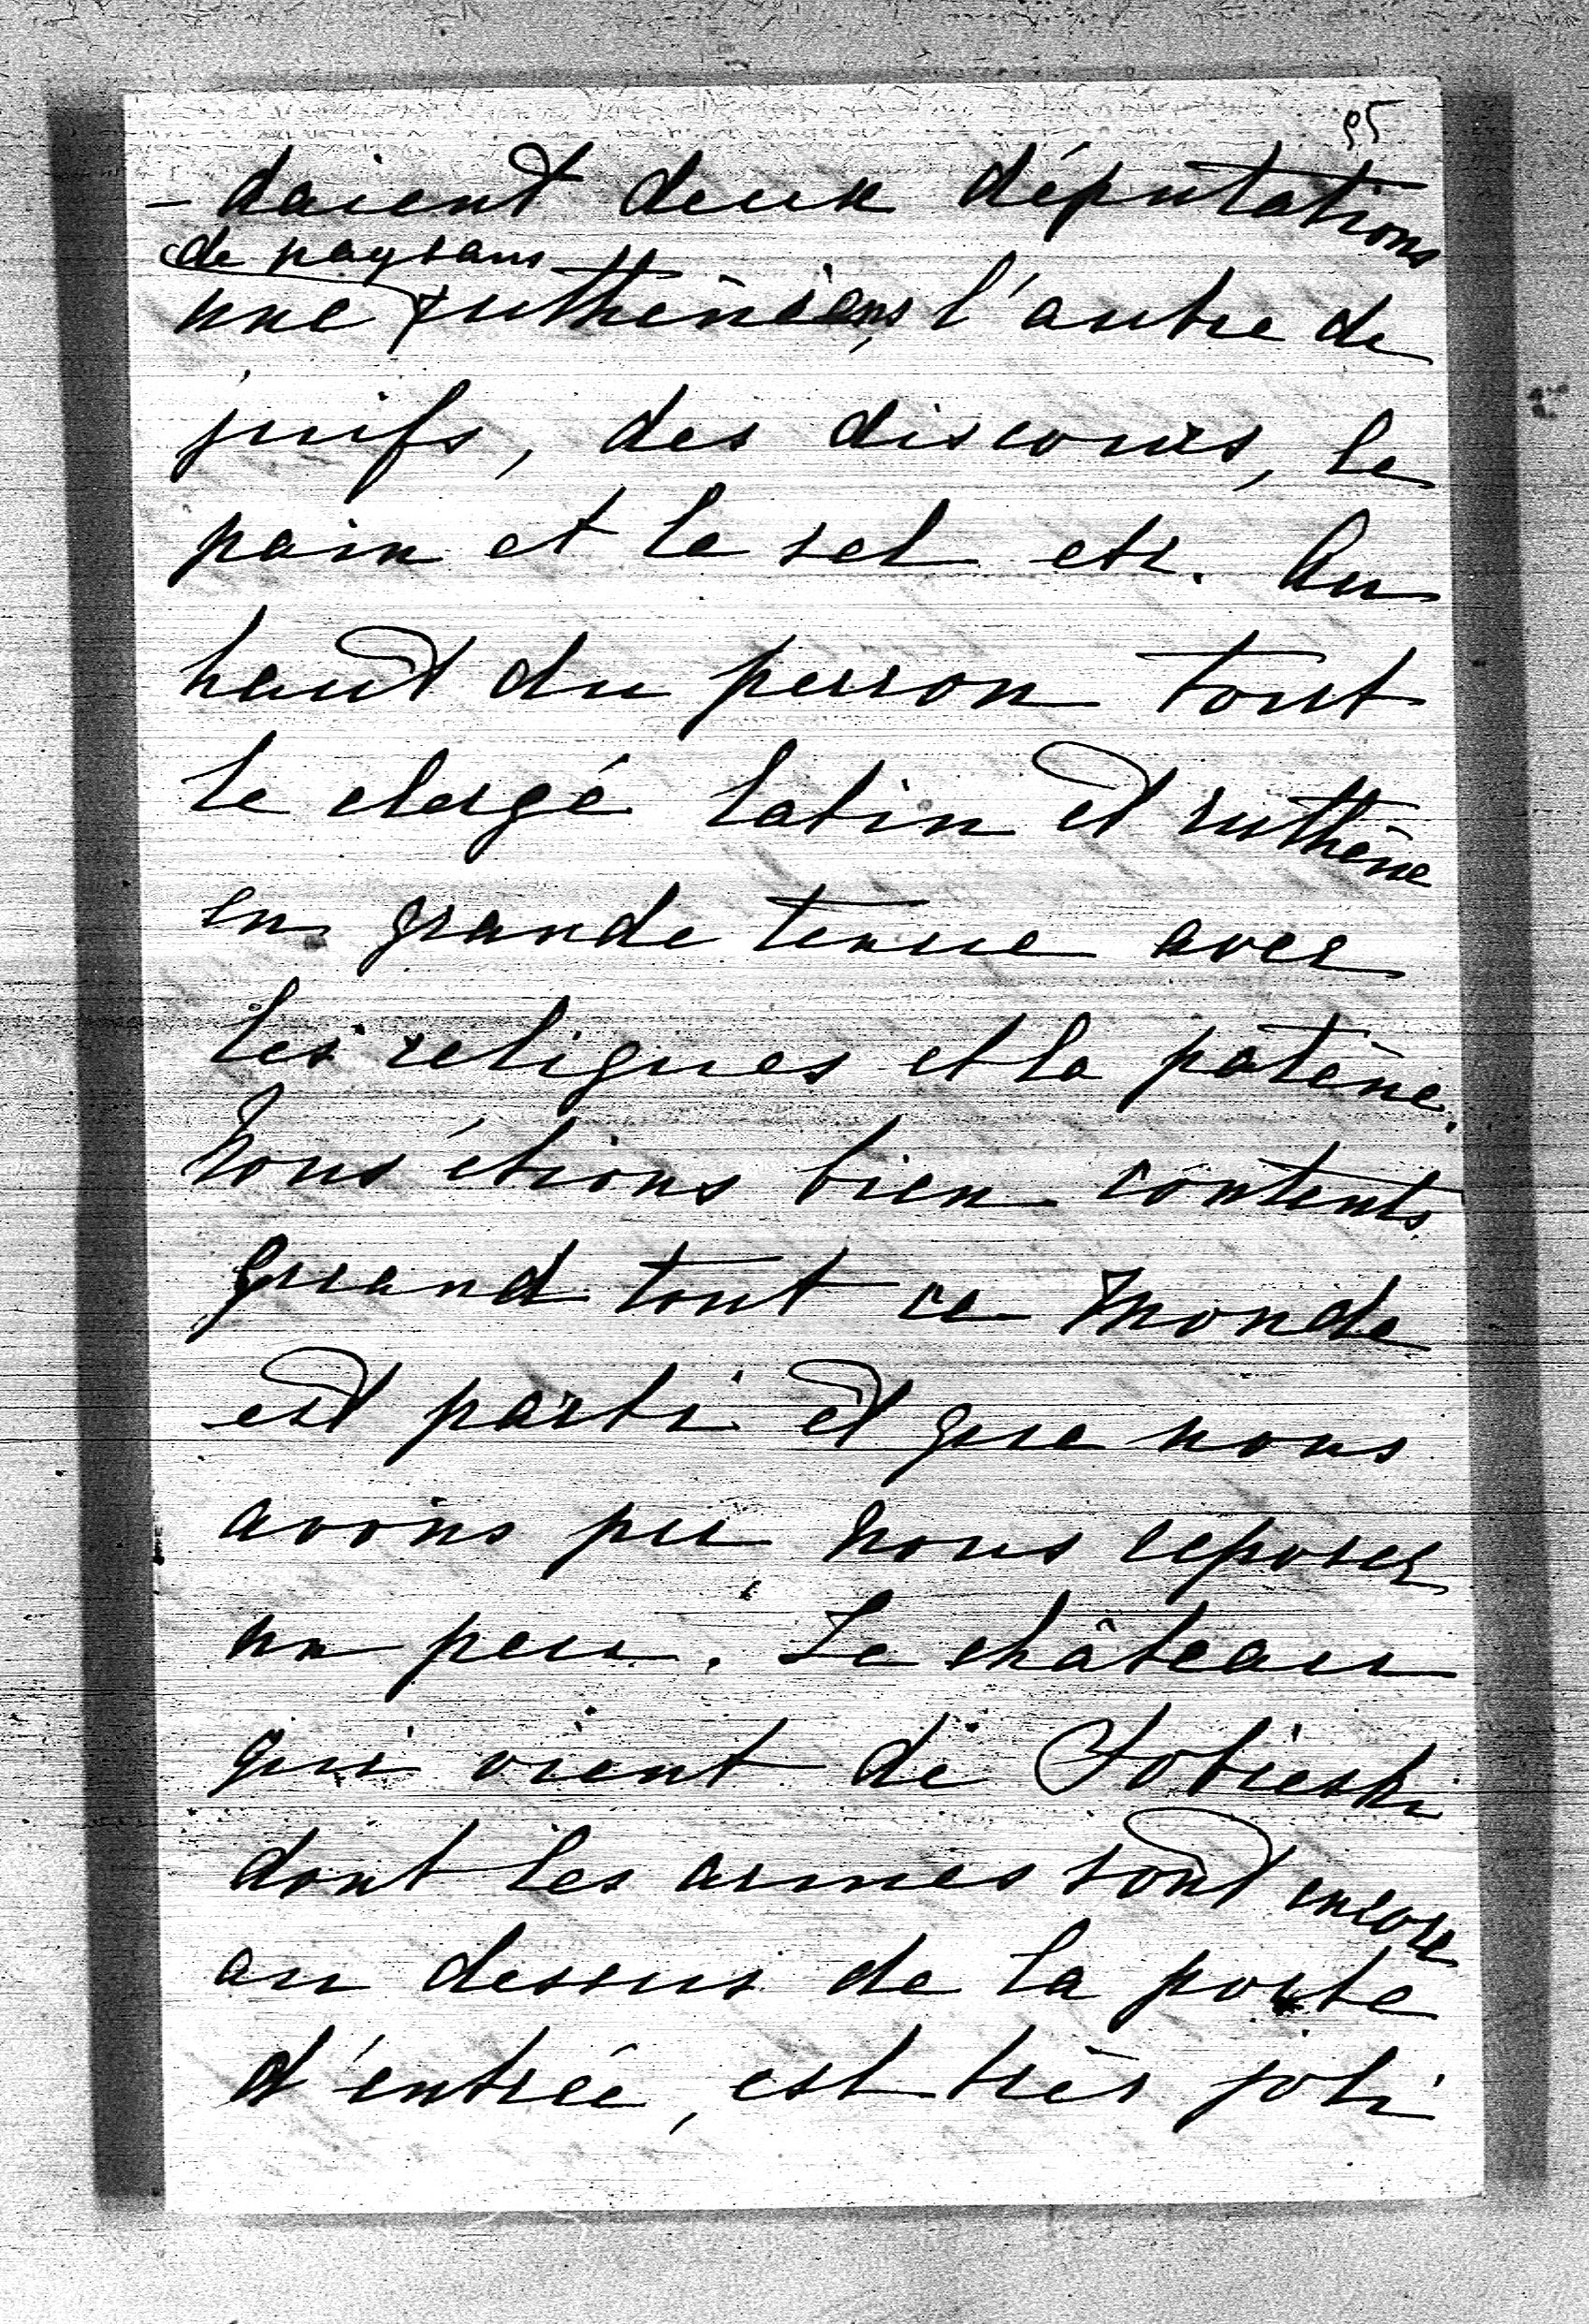 95
-daient deux députations
de paysans
une ruthéniens, l'autre de
juifs, des discours, le
pain et le sel etc. Au
haut du perron tout
le clergé latin et ruthène
en grande tenue avec
les reliques et la patène.
Nous étions bien contents
quand tout ce monde
est parti et que nous
avons pu nous reposer
un peu. Le château
qui vient de Sobieski
dont les armes sont encore
au dessus de la porte
d'entrée, est très joli